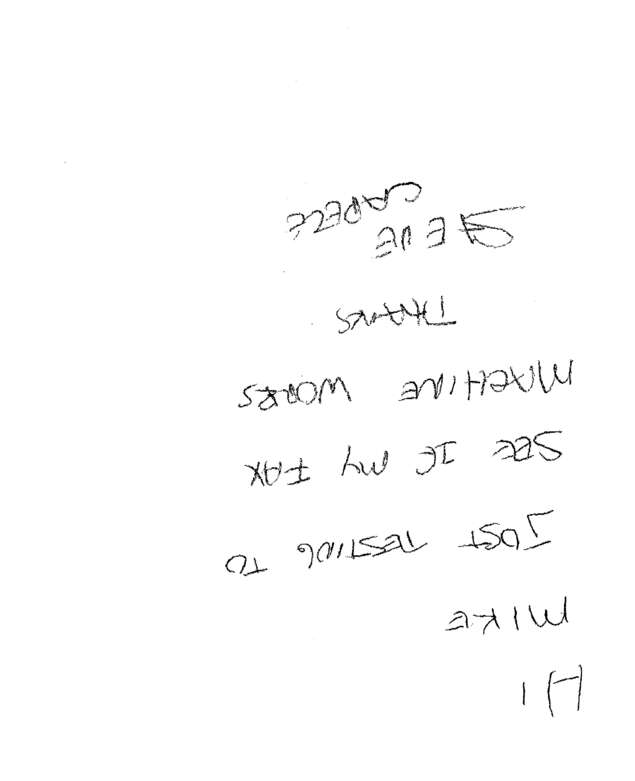 HI
MIKE
JUST TESTING TO
SEE IF MY FAX
MACHINE WORKS
THANKS
STEVE